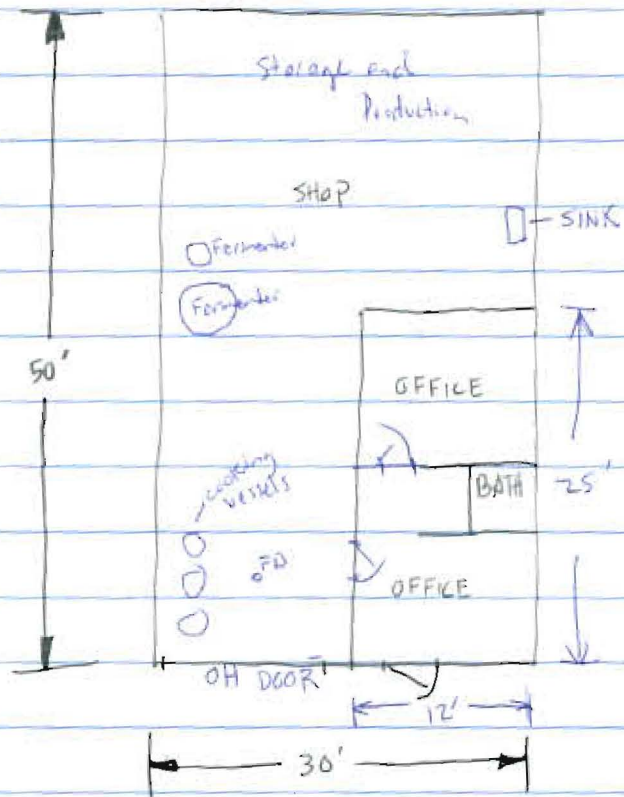 Storage and
Production
SHOP
SINK
Fermenter
Fermenter
50'
OFFICE
cooking
vessels
BATH
25'
FD
OFFICE
OH DOOR
12'
30'